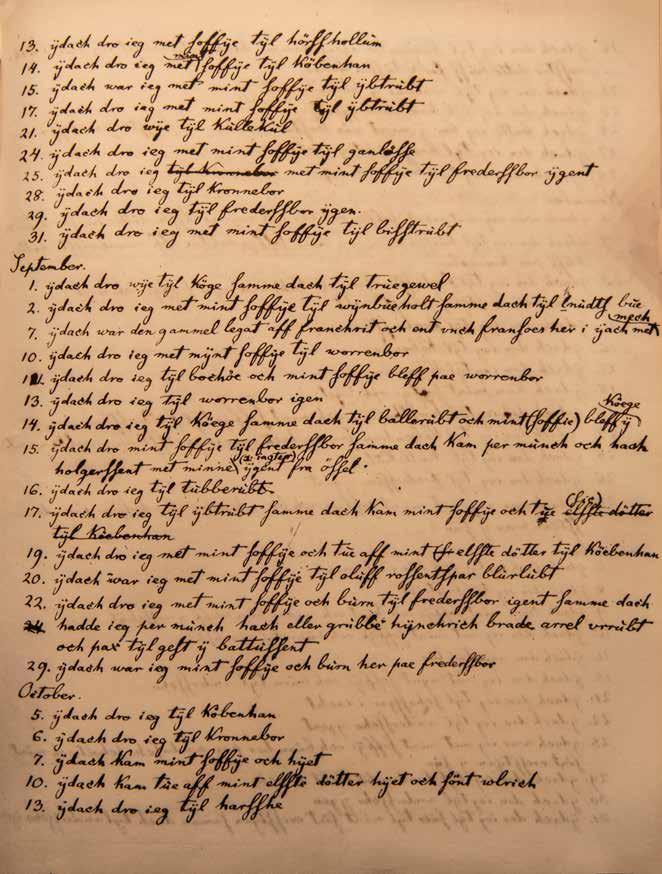 13. ÿdach dro ieg met soffÿe tÿl hörsshollum
14. ÿdach dro ieg met mint soffÿe tÿl Köbenhan
15. ÿdach war ieg met mint soffÿe tÿl ÿbtrübt
17. ÿdach dro ieg met mint soffÿe tÿl ÿbtrübt
21. ÿdach dro wÿe tÿl Küllekül
24. ÿdach dro ieg met mint soffÿe tÿl ganlösse
25. ÿdach dro ieg tÿl Kronnebor met mint soffÿe tÿl frederssbor ÿgent
28. ÿdach dro ieg tÿl Kronnebor
29. ÿdach dro ieg tÿl frederssbor ÿgen.
31. ÿdach dro ieg met mint soffÿe tÿl bisstrübt
September.
1. ÿdach dro wÿe tÿl Köge samme dach tÿl trüegewel
2. ÿdach dro ieg met mint soffÿe tÿl wÿnbüeholt samme dach tÿl lnüdts büe
7. ÿdach war den gammel legat aff franchrit och ent unch fransoes her i ÿach met mech
10. ÿdach dro ieg met mÿnt soffÿe tÿl worrenbor
11. ÿdach dro ieg tÿl boehöe och mint soffÿe bleff pae worrenbor
13. ÿdach dro ieg tÿl worrenbor igen
14. ÿdach dro ieg tÿl Köege samme dach tÿl ballerübt och mint (soffie) bleff ÿ Köege
15. ÿdach dro mint soffÿe tÿl frederssbor samme dach Kam per münch och hach
holgerssent met minne ÿgent fra össel.
16. ÿdach dro ieg tÿl tübberübt
17. ÿdach dro ieg tÿl ÿbtrübt samme dach Kam mint soffÿe och tüe elsste dötter
tÿl Köebenhan
19. ÿdach dro ieg met mint soffÿe och tüe aff mint elsste dötter tÿl Köebenhan
20. ÿdach war ieg met mint soffÿe tÿl olüff rossentspar blürlübt
22. ÿdach dro ieg met mint soffÿe och bürn tÿl frederssbor igent samme dach
24 hadde ieg per münch hach eller grübbe hÿnchrich brade arrel urrübt
och pax tÿl gest ÿ battüssent
29. ÿdach war ieg mint soffÿe och bürn her pae frederssbor
October.
5. ÿdach dro ieg tÿl Köbenhan
6. ÿdach dro ieg tÿl Kronnebor
7. ÿdach Kam mint soffÿe och hÿet
10. ÿdach Kam tüe aff mint elsste dötter hÿet och sönt wlrich
13. ÿdach dro ieg tÿl harsshe